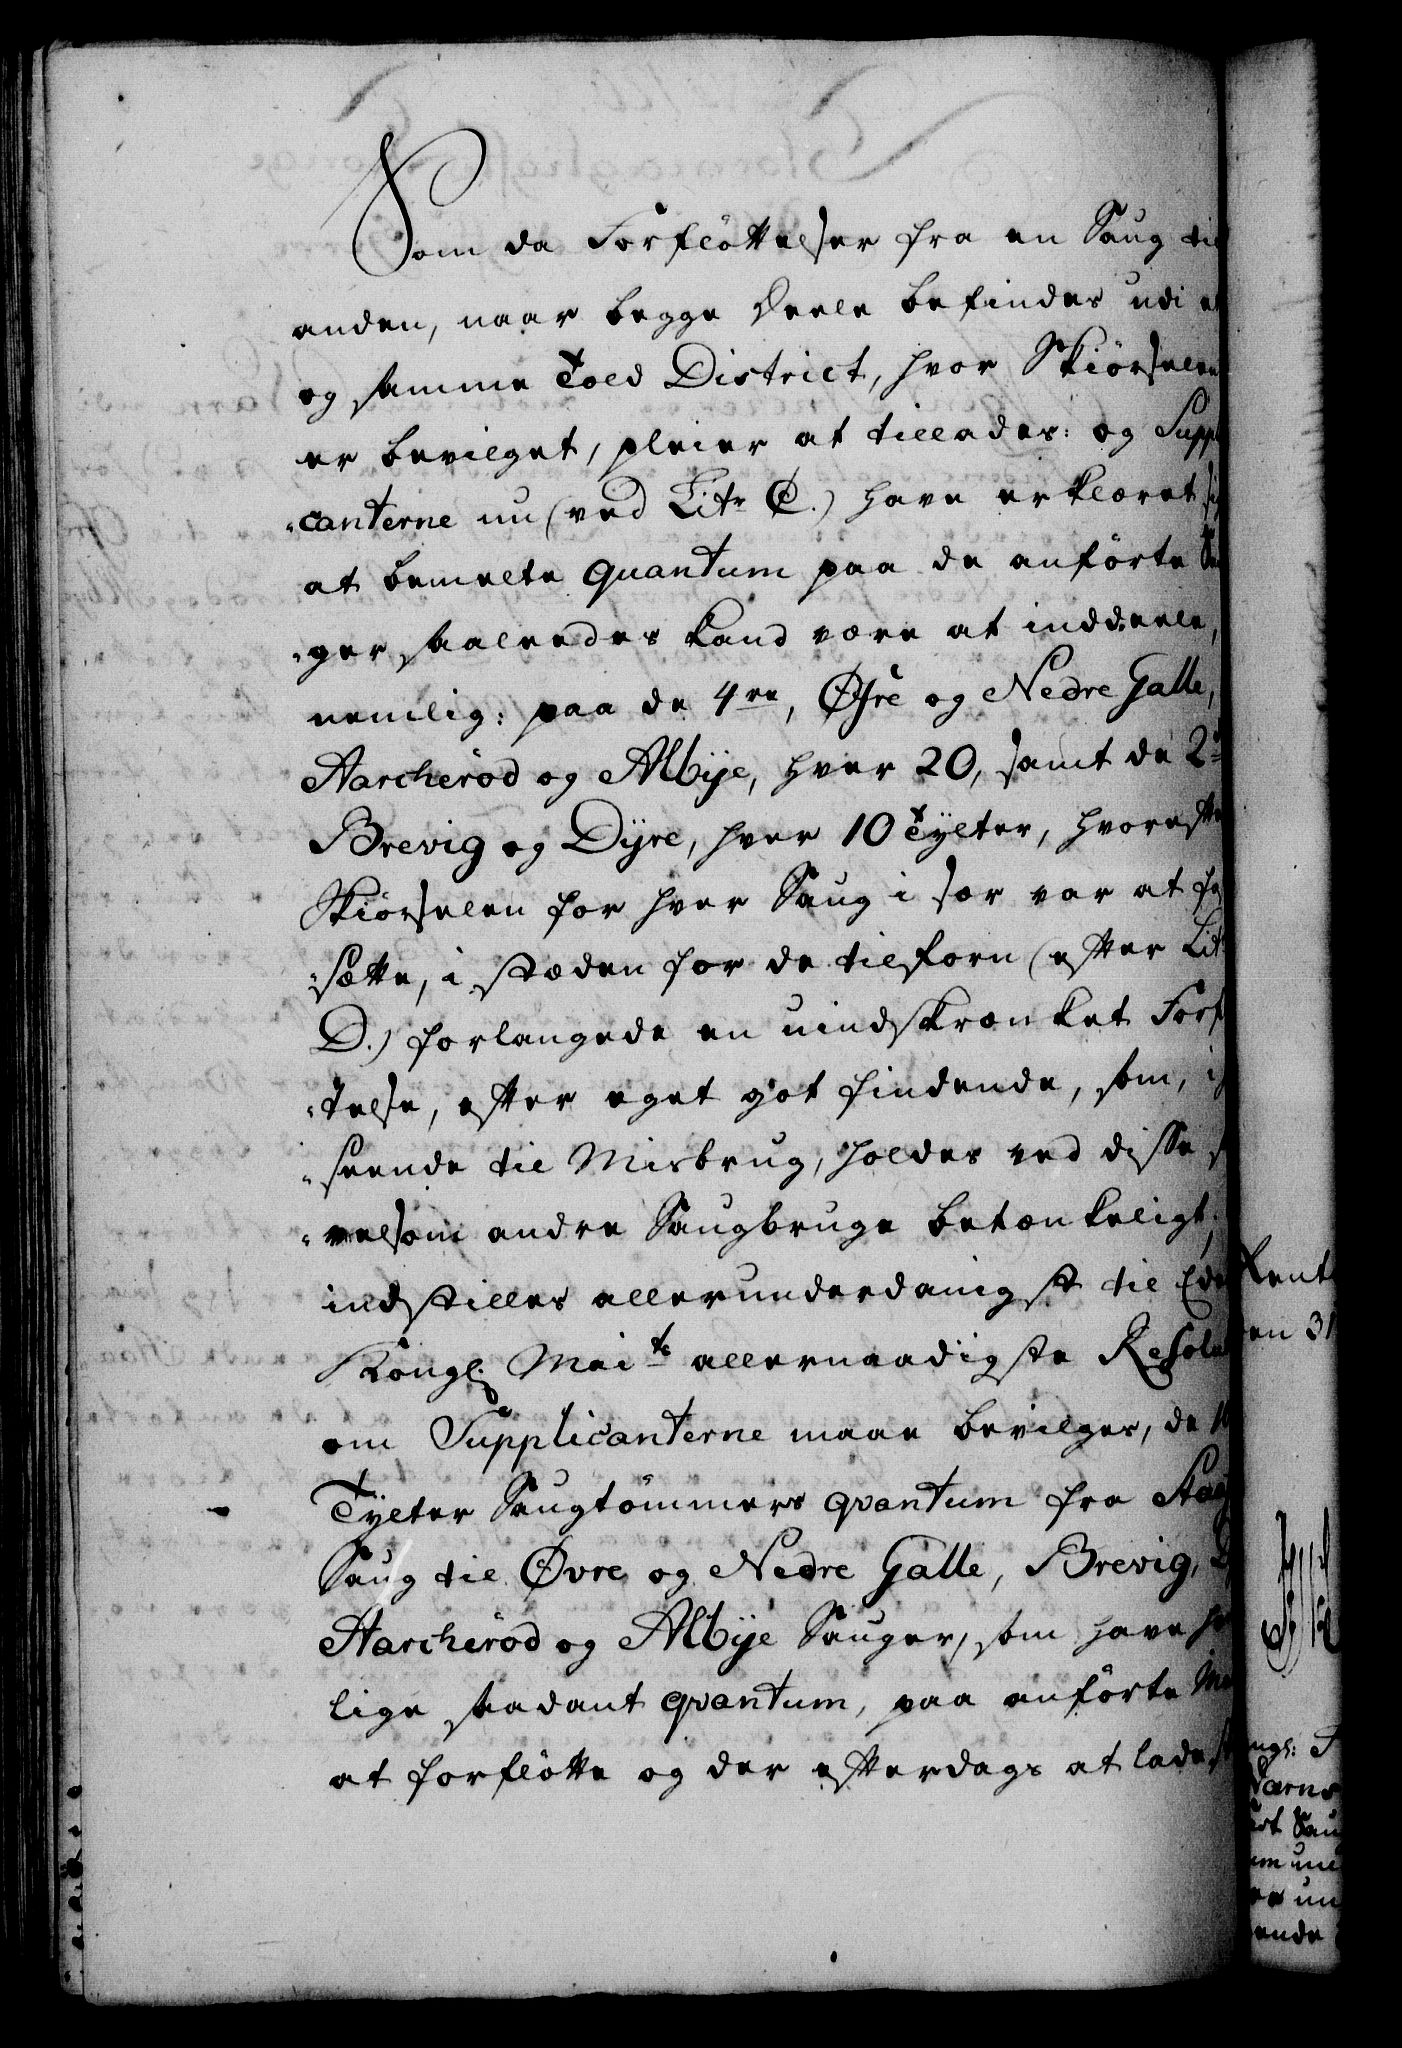 Som da Forflöttelser fra en Saug til
anden, naar begge Deele befindes udi et
og samme Told District, hvor Skiörselen
er bevilget, pleier at tillades: og Suppli
canterne nu (ved Litr C.) have erklæret sig
at bemelte quantum paa de anförte Sau
ger saaleedes kand være at inddeele,
nemlig: paa de 4re, Øfre og Nedre Galle,
Aarcheröd og Albÿe, hver 20, samt de 2de
Brevig og Dÿre, hver 10 Tylter, hvorefter
Skiörselen for hver Saug i sær var at fast
sætte, i stæden for de tilforn (efter Litr
D.) forlangede en uindskrænket Forflöt
telse, efter eget got findende, som, i
seende til Misbrug, holdes ved disse
velsom andre Saugbruge betænkeligt;
indstilles allerunderdanigst til Eders
Kongl. Maits allernaadigste Resolution
om Supplicanterne maae bevilges, de
Tylter Saugtömmers qvantum fra
Saug til Øvre og Nedre Galle, Brevig,
Aarcheröd og Albÿe Sauger, som have
lige saadant qvantum, paa anförte
at forflötte og der efterdags at lade
Rent
en 31
ngl:
ende